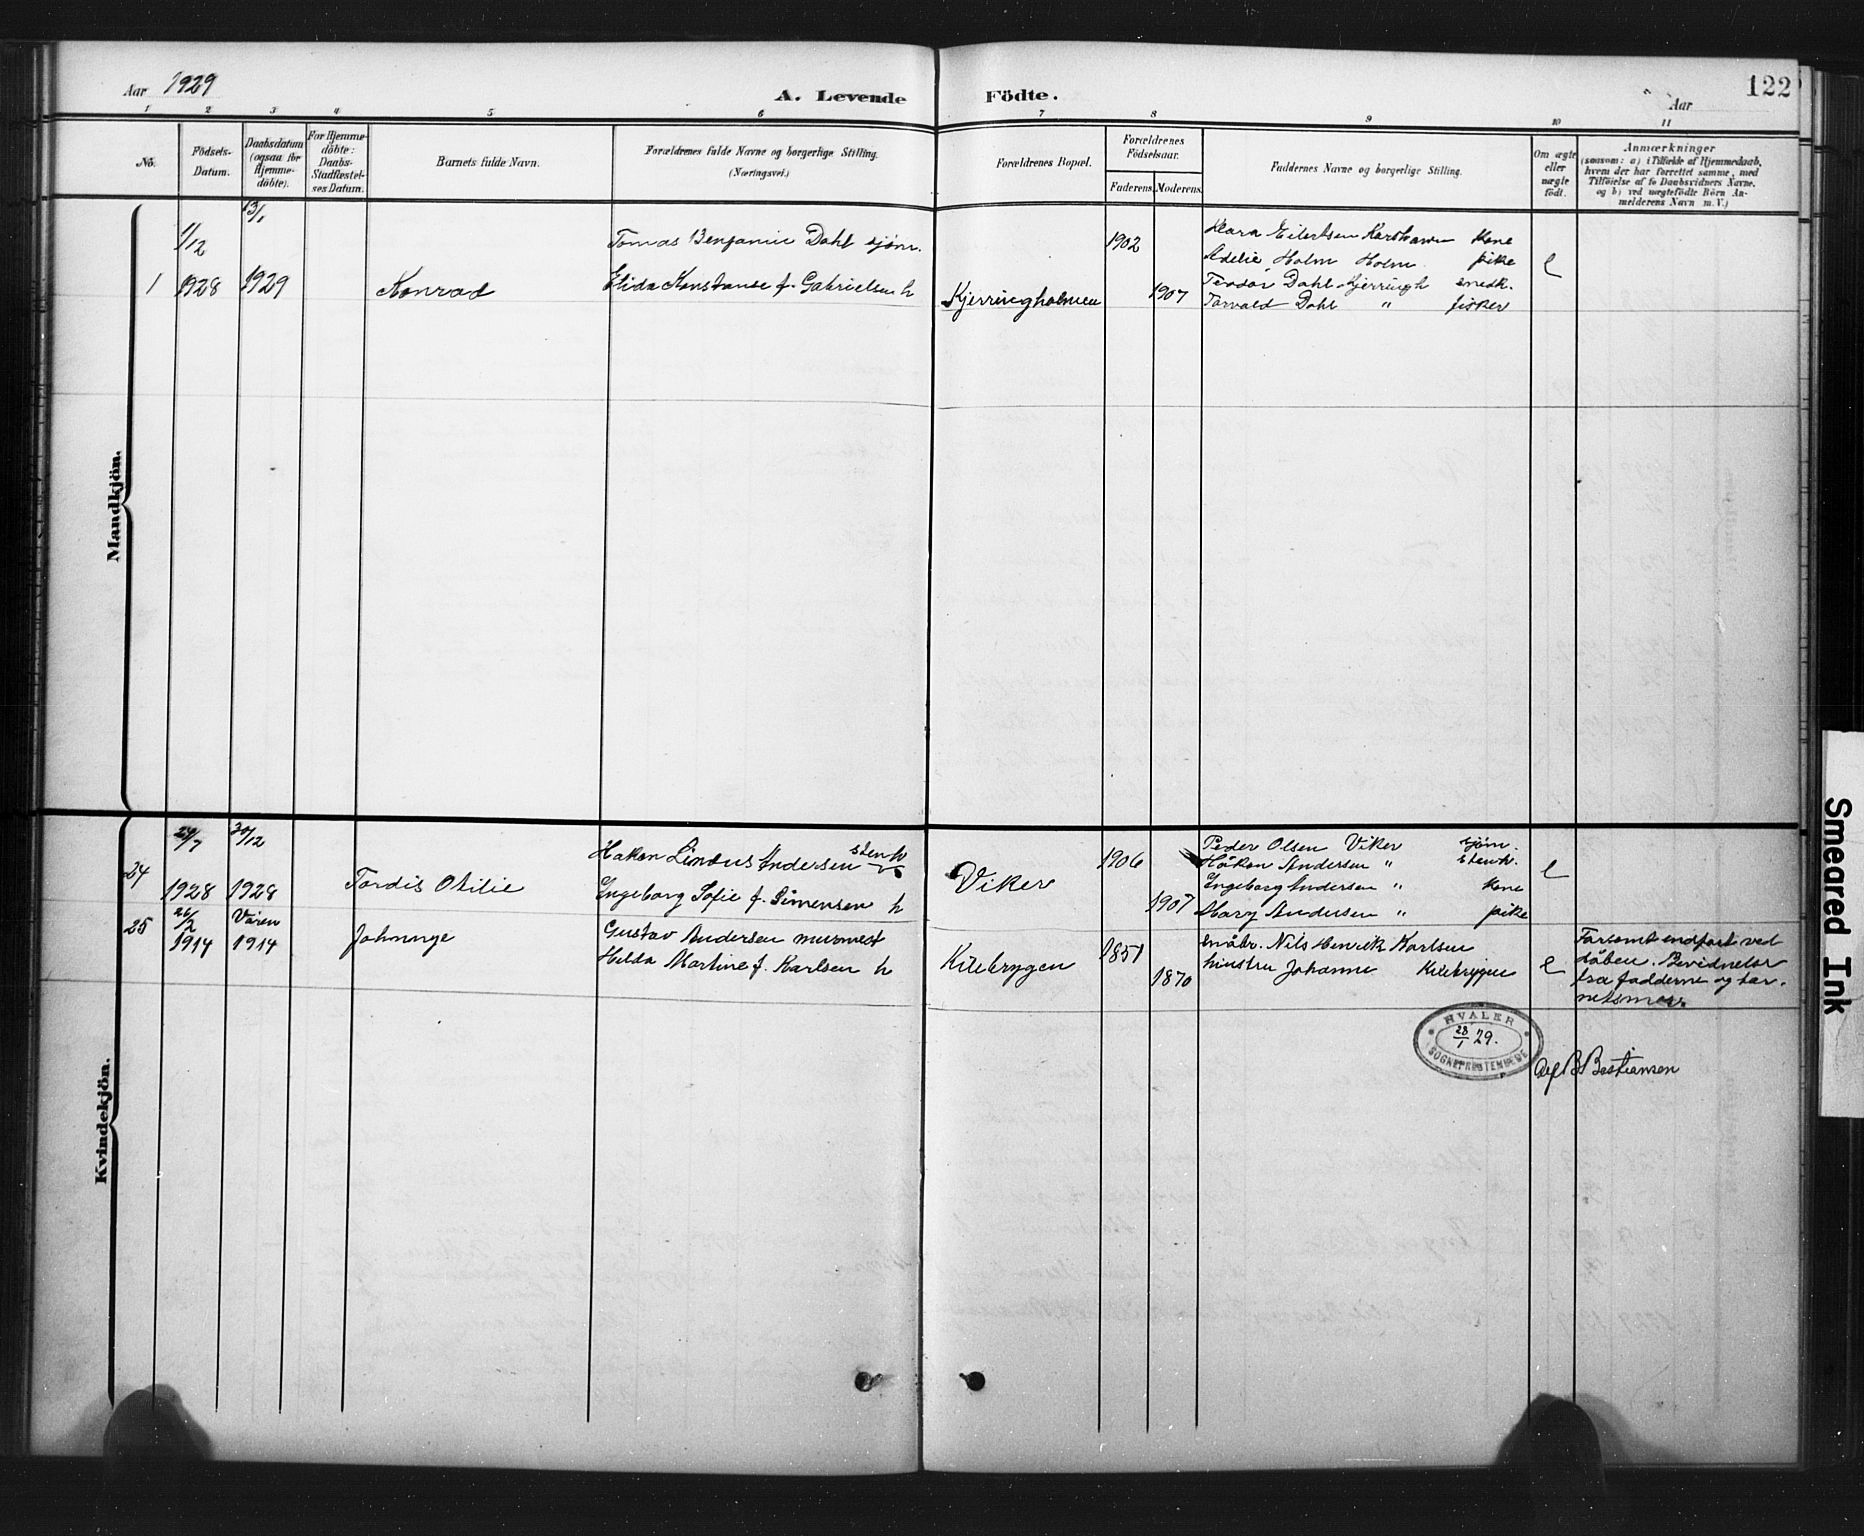 Aar 1929
A. Levende Födte.
Aar
122
1 2 3 4 5 6 7 8 9 10 11
No.
Födsels-
Datum.
Daabsdatum
(ogsaa for
Hjemme-
döbte).
For Hjemme-
döbte:
Daabs-
Stadfæstel-
ses Datum.
Barnets fulde Navn.
Forældrenes fulde Navne og borgerlige Stilling.
(Næringsvei.)
Forældrenes Bopæl.
Forældrenes
Födselsaar.
Faderens. Moderens.
Faddernes Navne og borgerlige Stilling.
Om ægte
eller
uægte
födt.
Anmærkninger
(saasom: a) i Tilfælde af Hjemmedaab,
hvem der har forrettet samme, med
Tilföielse af to Daabsvidners Navne,
og b) ved uægtefödte Börn An-
melderens Navn m. V.)
Mandkjön.
1
1/12
1928
13/1
1929
Konrad
Tomas Benjamin Dahl sjøm.
Elida Konstanse f. Gabrielsen h
Kjerringholmen
1902
1907
Klara Eilertsen kone
Adelie Holm Holm pike
Teodor Dahl Kjerringh snedk.
Torvald Dahl " fisker
e
Kvindekjön.
24
24/7
1928
30/12
1928
Tordis Otilie
Håkon Lindus Andersen stenh
Ingeborg Sofie f. Simensen h
Viker
1906
1907
Peder Olsen Viker sjøm.
Håkon Andersen " stenh.
Ingeborg Andersen " kone
Mary Andersen " pike
e
25
26/2
1914
Våren
1914
Johnnye
Gustav Andersen murmest
Hilda Martine f. Karlsen h
Kilebrygen
1851
1870
småbr. Nils Henrik Karlsen
hustru Johanne Kilebrygen
e
Forsømt indført ved
dåben. Bevidnelse
fra fadderne og bar-
netsmor.
HVALER
28/1 29.
SOGNEPRESTEMBEDE
Alf B Bastiansen
Smeared Ink